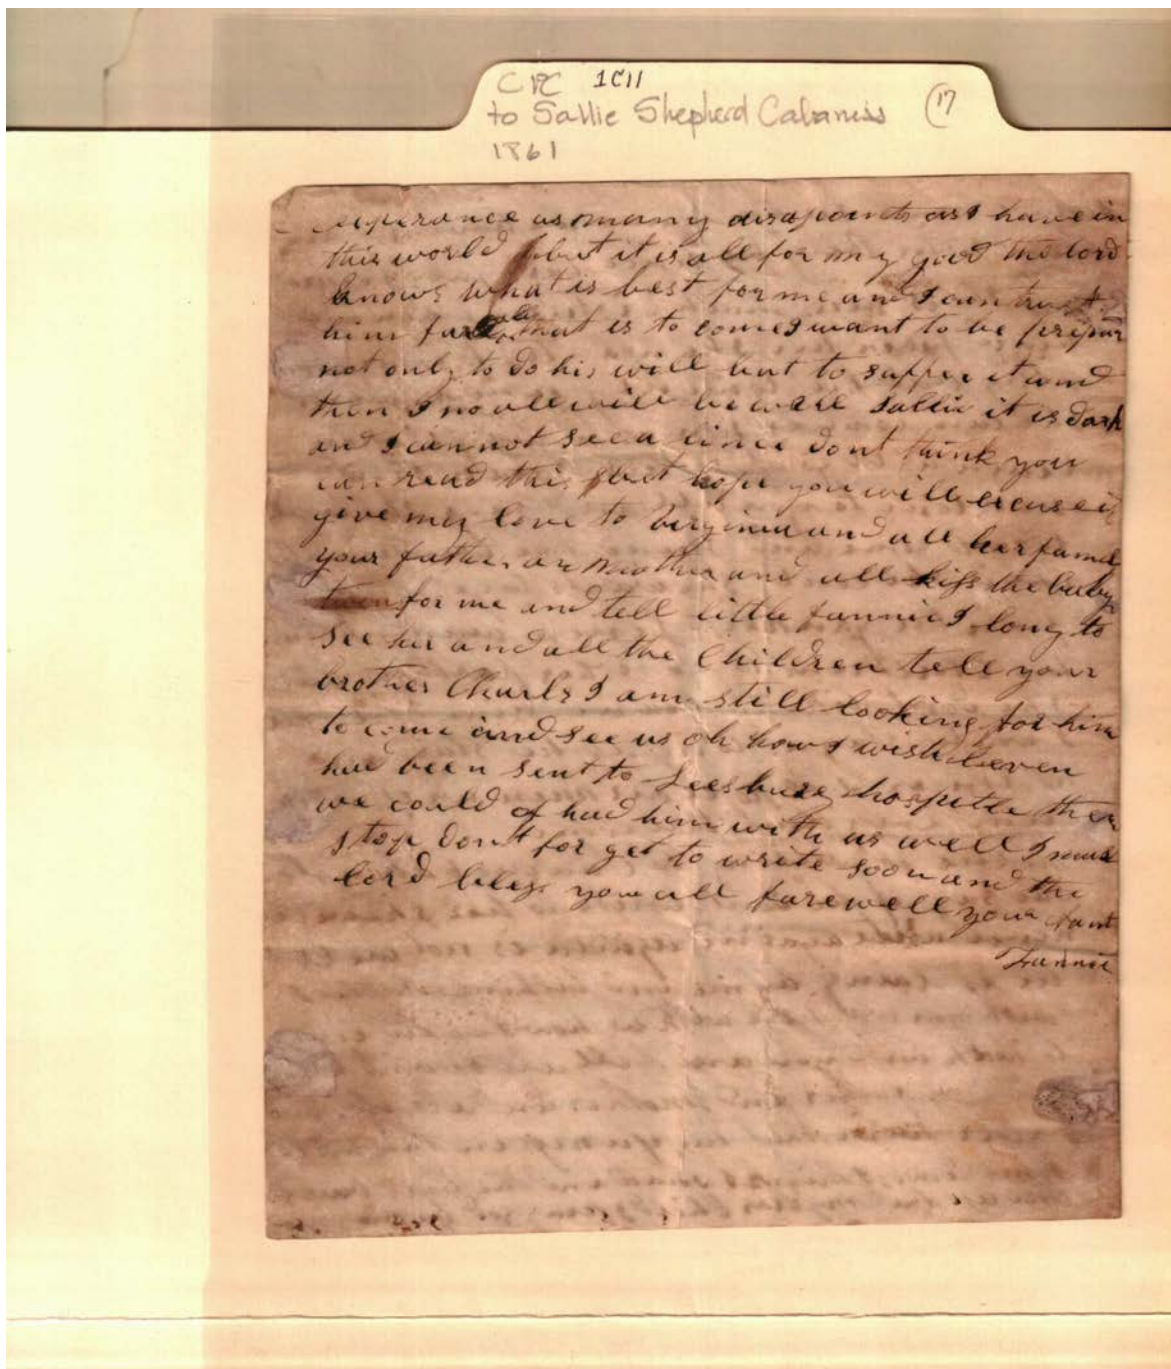 CPC 1C11
to Sallie Shepherd Cabaniss (17)
1861
as many disapoints as I have in
this world but it is all for my good the lord
knows what is best for me and I can trust
him for all that is to come I want to be prepar
not only to do his will but to suffer it and
then I no all will be well Sallie it is dark
and I can not see a line dont think you
can read this but hope you will excuse it
give my love to virginia and all her famil
your father an Mother and all kiss the baby
for me and tell little fannie I long to
see her and all the Children tell your
brother Charls I am still looking for him
to come and see us oh how I wish
had been sent to Leesburg hospitle then
we could of had him with us well I must
stop dont for get to write soon and the
lord bless you all farewell your Aunt
Fannie